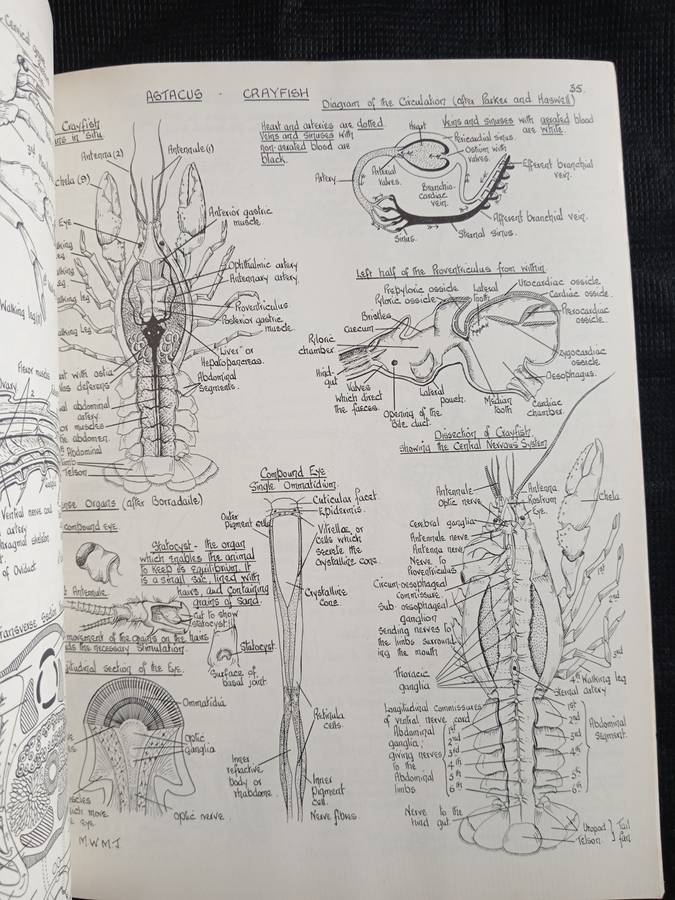 35.
ASTACUS - CRAYFISH
Diagram of the Circulation (after Parker and Haswell)
Crayfish
in Situ
Antenna (2)
Antennule (1)
chela (9)
Eye
Walking
leg
Walking leg
Anterior gastric
muscle.
Ophthalmic artery
Antennary artery
Proventriculus
Posterior gastric
muscle.
Liver or
Hepatopancreas.
Abdominal
Segments.
with ostia
vas deferens
abdominal
artery
or muscles
the abdomen.
Abdominal
limb
Telson
Heart and arteries are dotted.
Veins and sinuses with
non-aerated blood are
black.
Veins and sinuses with aerated blood
are white.
Heart
Pericardial sinus.
Ostium with
valves.
Efferent branchial
vein.
Artery
Arterial
valves.
Branchio-
cardiac
vein.
Afferent branchial vein.
Sternal sinus.
Sinus.
Left half of the Proventriculus from within.
Prepyloric ossicle
Pyloric ossicle
Lateral
tooth
Urocardiac ossicle
Cardiac ossicle.
Pterocardiac
ossicle.
Bristles
caecum
Pyloric
chamber
Hind-
gut
Valves
which direct
the faeces.
Opening of the
bile duct.
Lateral
pouch.
Median
tooth
Cardiac
chamber.
Zygocardiac
ossicle
Oesophagus.
Dissection of Crayfish
showing the Central Nervous System
Antennule
Optic nerve
Antenna
Rostrum
Eye.
Chela
Cerebral ganglia
Antennule nerve
Antenna nerve
Nerve to
Proventriculus
Circum-oesophageal
commissure
Sub-oesophageal
ganglion
Sending nerves to
the limbs surround
ing the mouth
Thoracic
ganglia
1st
2nd
3rd
4th Walking leg
Sternal artery
Longitudinal commissures
of ventral nerve cord
Abdominal
ganglia,
giving nerves
to the
Abdominal
limbs
1st
2nd
3rd
4th
5th
6th
1st
2nd
3rd
4th
5th
6th
Abdominal
Segment.
Nerve to the
hind gut
Uropod
Telson
Tail
fan
Compound Eye
Single Ommatidium.
Outer
Pigment cells
Cuticular facet
Epidermis.
Vitrellae, or
cells which
secrete the
crystalline cone.
Crystalline
cone.
Retinula
cells.
Inner
refractive
body or
rhabdome.
Inner
Pigment
Cell.
Nerve fibres.
Sense Organs (after Borradaile)
compound eye
Statocyst - the organ
which enables the animal
to keep its equilibrium. It
is a small sac, lined with
hairs, and containing
grains of sand.
Antennule
cut to show
statocyst.
movement of the grains on the hairs
the necessary stimulation.
Statocyst
Surface of
basal joint.
Longitudinal section of the Eye.
Ommatidia
Optic
ganglia
Optic nerve
muscles
which move
eye
M.W.M.J
Walking leg
Flexor muscles
Ovary
Ventral nerve cord
artery
skeleton
of Oviduct
Transverse Section